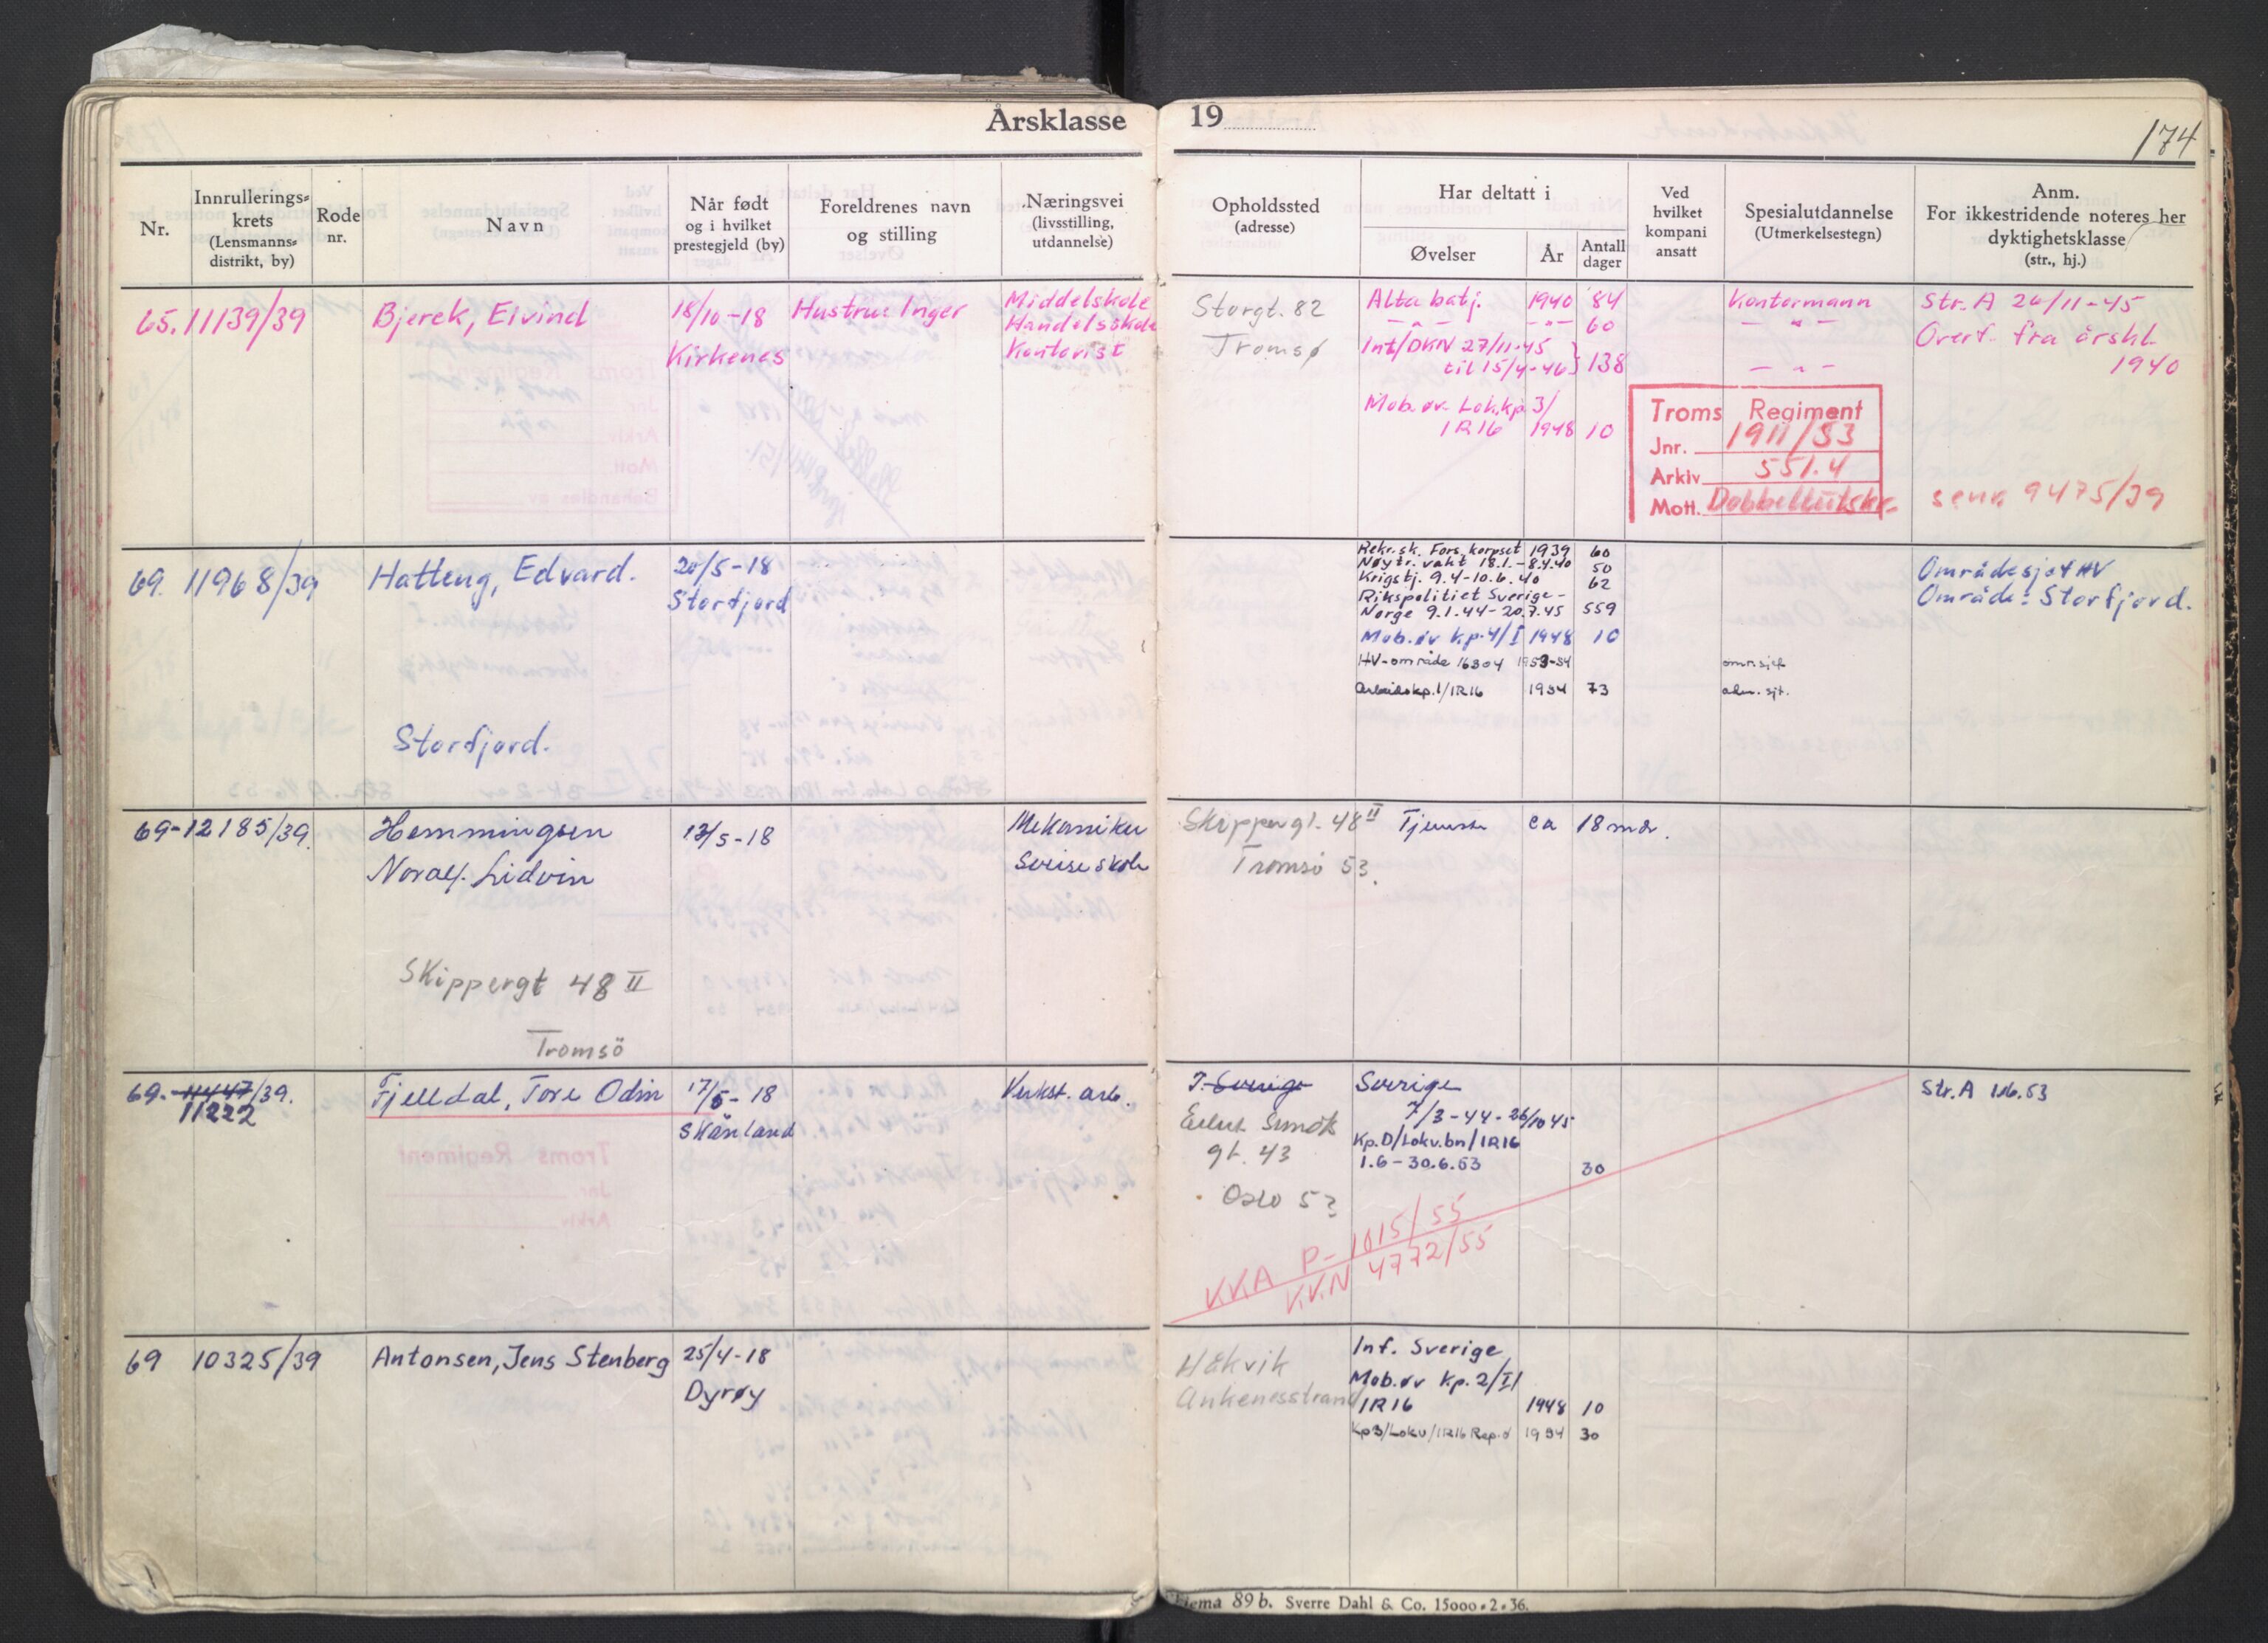 Årsklasse 19
174
Nr.
Innrullerings=
krets
(Lensmanns=
distrikt, by)
Rode
nr.
Navn
Når født
og i hvilket
prestegjeld (by)
Foreldrenes navn
og stilling
Næringsvei
(livsstilling,
utdannelse)
Opholdssted
(adresse)
Har deltatt i
Øvelser
År
Antall
dager
Ved
hvilket
kompani
ansatt
Spesialutdannelse
(Utmerkelsestegn)
Anm.
For ikkestridende noteres her
dyktighetsklasse
(str., hj.)
65. 11139/39
Bjerek, Eivind
18/10-18
Kirkenes
Hustru: Inger
Middelskole
Handelsskole
Kontorist
Storgt. 82
Tromsø
Alta batj. 1940 84
— " — — " — 60
Int/DKN 27/11-45
til 15/4-46 } 138
Mob.øv. Lok.kp. 3/
IR16 1948 10
Kontormann
— " —
— " —
Str. A 26/11-45
Overf. fra årskl.
1940
Troms Regiment
Jnr. 1911/53
Arkiv 551.4
Mott. Dobbeltutskr.
se nr. 9475/39
69. 11968/39
Hatteng, Edvard.
Storfjord.
20/5-18
Storfjord
Rekr.sk. Fors.korpset 1939 60
Nøytr. vakt 18.1.-8.4.40 50
Krigstj. 9.4-10.6.40 62
Rikspolitiet Sverige-
Norge 9.1.44-20.7.45 559
Mob.øv kp.4/I 1948 10
HV-område 16304 1953-54
Arbeidskp.1/IR16 1954 73
omr.sjef
adm. sjt.
Områdesjef HV
Område: Storfjord.
69-12185/39.
Hemmingsen
Noralf Lidvin
Skippergt 48 II
Tromsö
13/5-18
Mekaniker
Sveiseskole
Skippergt. 48 II
Tromsö 53.
Tjeneste ca 18 mdr.
69.-11447/39.
11222
Fjelldal, Tore Odin
17/5-18
Skånland
Verkst. arb.
I. Sverige
Eilert Sundts
gt. 43
Oslo 53
Sverige
7/3-44-26/10 45
Kp.D/Lokv.bn/IR16
1.6-30.6.53 30
KKA P-1015/55
KKN 4772/55
Str. A 1/6.53
69 10325/39
Antonsen, Jens Stenberg
25/4-18
Dyrøy
Håkvik
Ankenesstrand
Inf. Sverige
Mob.øv kp.2/II
IR16 1948 10
Kp3/Lokv/IR16 Rep.ø 1954 30
Skjema 89 b. Sverre Dahl & Co. 15000 • 2 • 36.